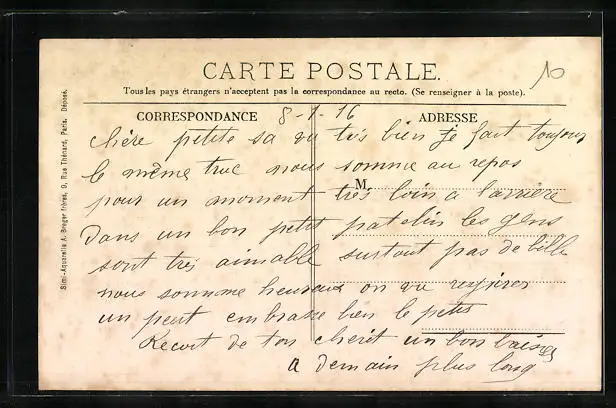 CARTE POSTALE.
Tous les pays étrangers n'acceptent pas la correspondance au recto. (Se renseigner à la poste).
CORRESPONDANCE 8-1-16 ADRESSE
chère petite sa va très bien je fait toujour
le même truc nous somme au repos
M
pour un moment très loin a larrière
Dans un bon petit patelin les gens
sont très aimable surtout pas de bille
nous somme heureux on va respirer
un peut embrasse bien le petit
Recoit de ton cherit un bon baiser
a demain plus long
10
Simi-Aquarelle A. Breger frères, 9, Rue Thénard, Paris. Déposé.